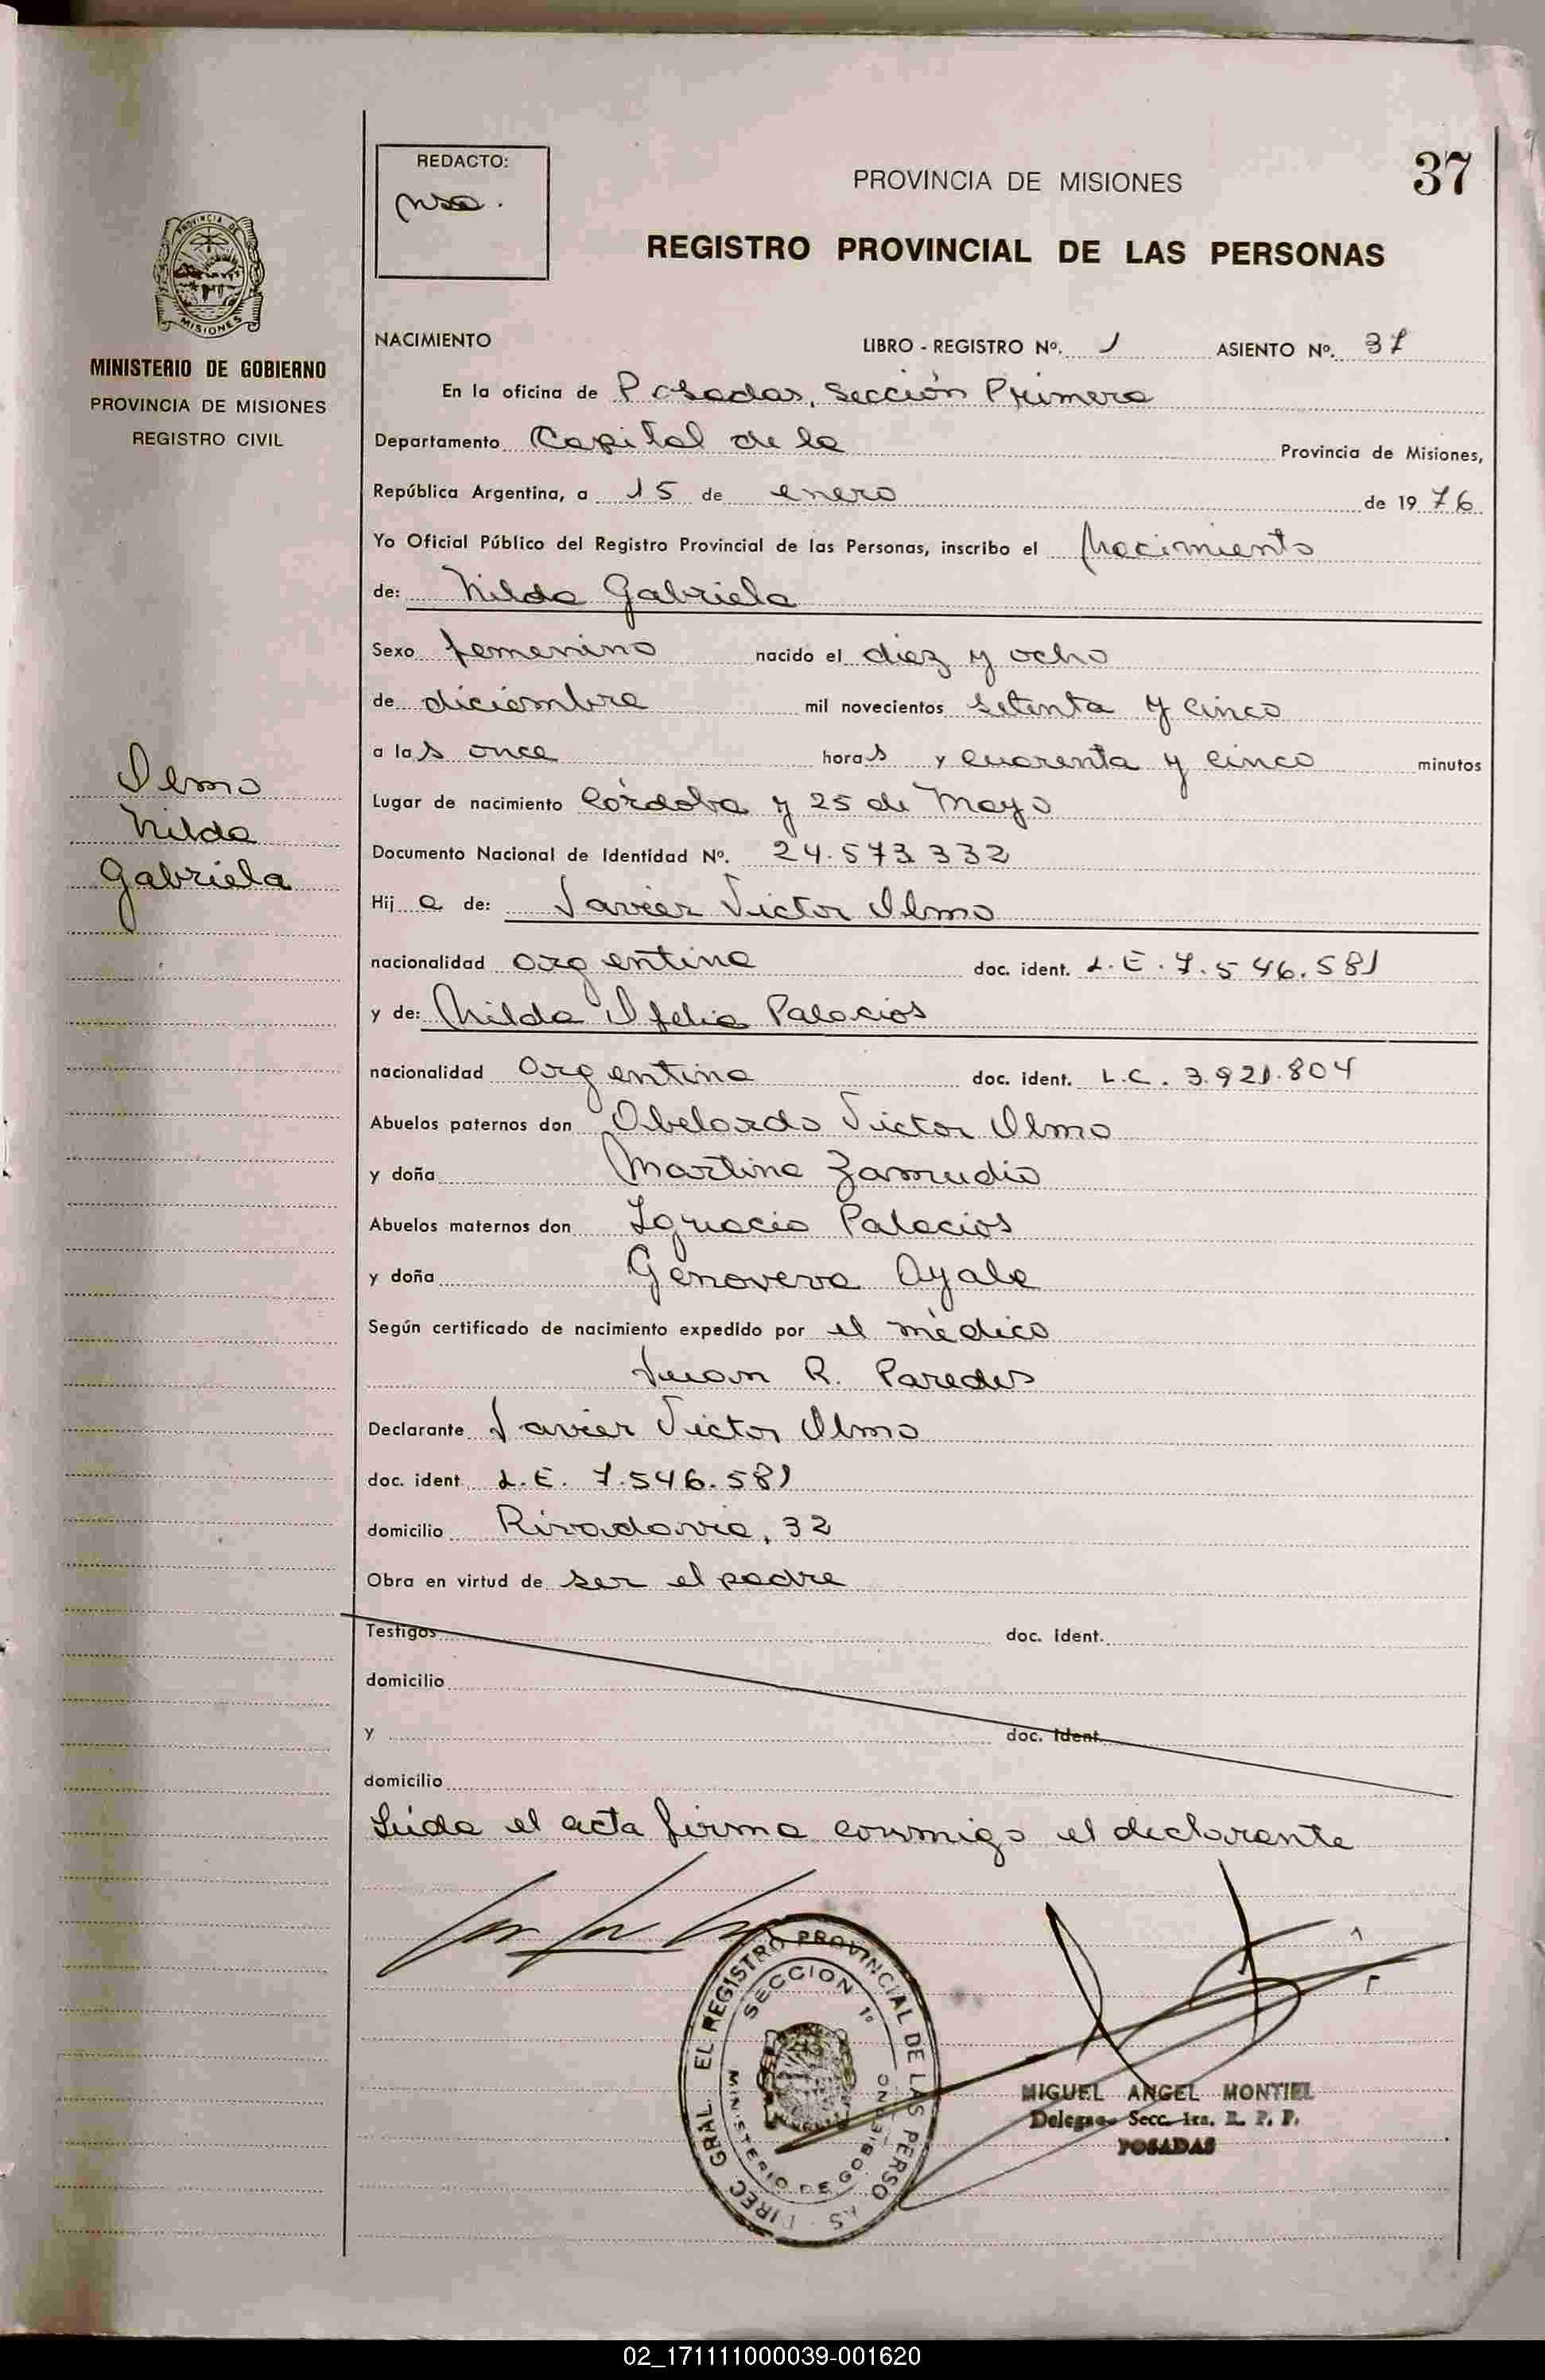 REDACTO:
PROVINCIA DE MISIONES
37
REGISTRO PROVINCIAL DE LAS PERSONAS
PROVINCIA DE
MISIONES
MINISTERIO DE GOBIERNO
PROVINCIA DE MISIONES
REGISTRO CIVIL
Olmo
Nilda
Gabriela
NACIMIENTO LIBRO - REGISTRO Nº. 1 ASIENTO Nº. 37
En la oficina de Posadas, Sección Primera
Departamento Capital de la Provincia de Misiones,
República Argentina, a 15 de enero de 1976
Yo Oficial Público del Registro Provincial de las Personas, inscribo el Nacimiento
de: Nilda Gabriela
Sexo femenino nacido el diez y ocho
de diciembre mil novecientos setenta y cinco
a las once horas y cuarenta y cinco minutos
Lugar de nacimiento Córdoba y 25 de Mayo
Documento Nacional de Identidad Nº. 24.573.332
Hija de: Javier Victor Olmo
nacionalidad argentina doc. ident. L.E. 7.546.581
y de: Nilda Ofelia Palacios
nacionalidad argentina doc. ident. L.C. 3.921.804
Abuelos paternos don Abelardo Victor Olmo
y doña Martina Zamudio
Abuelos maternos don Ignacio Palacios
y doña Genoveva Ayala
Según certificado de nacimiento expedido por el médico
Juan R. Paredes
Declarante Javier Victor Olmo
doc. ident. L.E. 7.546.581
domicilio Rivadavia, 32
Obra en virtud de ser el padre
Testigos doc. ident.
domicilio
y doc. ident.
domicilio
Leída el acta firma conmigo el declarante
DIREC GRAL. EL REGISTRO PROVINCIAL DE LAS PERSO AS
SECCION 1ª
MINISTERIO DE GOBIERNO
MIGUEL ANGEL MONTIEL
Delegado Secc. 1ra. R. P. P.
POSADAS
02_171111000039-001620